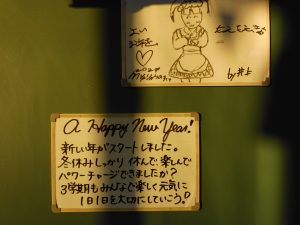 by 井上
A Happy New Year!
新しい年がスタートしました。
冬休みしっかり休んで、楽しんで
パワーチャージできましたか？
3学期もみんなで楽しく元気に
1日1日を大切にしていこう!